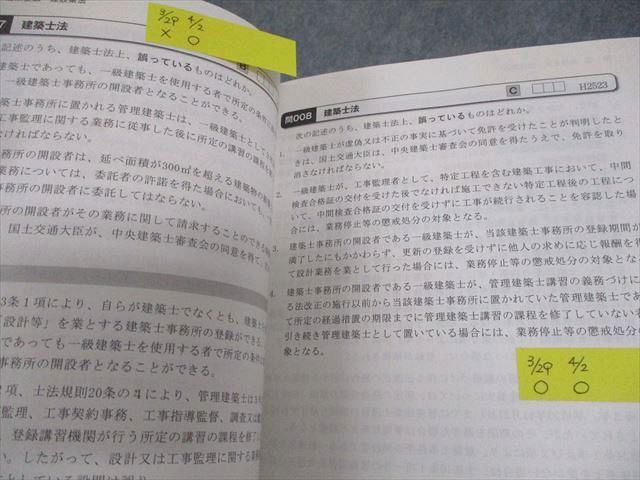 7 建築士法
3/29 4/2
× ○
記述のうち、建築士法上、誤っているものはどれか。
建築士であっても、一級建築士を使用する者で所定の条件
一級建築士事務所の開設者となることができる。
築士事務所に置かれる管理建築士は、一級建築士として3
工事監理に関する業務に従事した後に所定の講習の課程を
なければならない。
務所の開設者は、延べ面積が300㎡を超える建築物の
業務については、委託者の許諾を得た場合においても、
事務所の開設者に委託してはならない。
所の開設者がその業務に関して請求することのできる
国土交通大臣が、中央建築士審査会の同意を得て、
3条1項により、自らが建築士でなくとも、建築士
「設計等」を業とする建築士事務所の登録ができる。
であっても一級建築士を使用する者で所定の条件
務所の開設者となることができる。
2項、士法規則20条の4により、管理建築士は3
監理、工事契約事務、工事指導監督、調査又は
登録講習機関が行う所定の講習の課程を修了
い。したがって、設計又は工事監理に関する業務
としている設問は誤り
問008 建築士法
C H2523
次の記述のうち、建築士法上、誤っているものはどれか。
1. 一級建築士が虚偽又は不正の事実に基づいて免許を受けたことが判明したと
きは、国土交通大臣は、中央建築士審査会の同意を得たうえで、免許を取り
消さなければならない。
2. 一級建築士が、工事監理者として、特定工程を含む建築工事において、中間
検査合格証の交付を受けた後でなければ施工できない特定工程後の工程につ
いて、中間検査合格証の交付を受けずに工事が続行されることを容認した場
合には、業務停止等の懲戒処分の対象となる。
3. 建築士事務所の開設者である一級建築士が、当該建築士事務所の登録期間が
満了したにもかかわらず、更新の登録を受けずに他人の求めに応じ報酬を
て設計業務を業として行った場合には、業務停止等の懲戒処分の対象と
4. 建築士事務所の開設者である一級建築士が、管理建築士講習の義務づけに
る法改正の施行以前から当該建築士事務所に置かれていた管理建築士であ
て所定の経過措置の期限までに管理建築士講習の課程を修了していない者
引き続き管理建築士として置いている場合には、業務停止等の懲戒処分
象となる。
3/29 4/2
○ ○